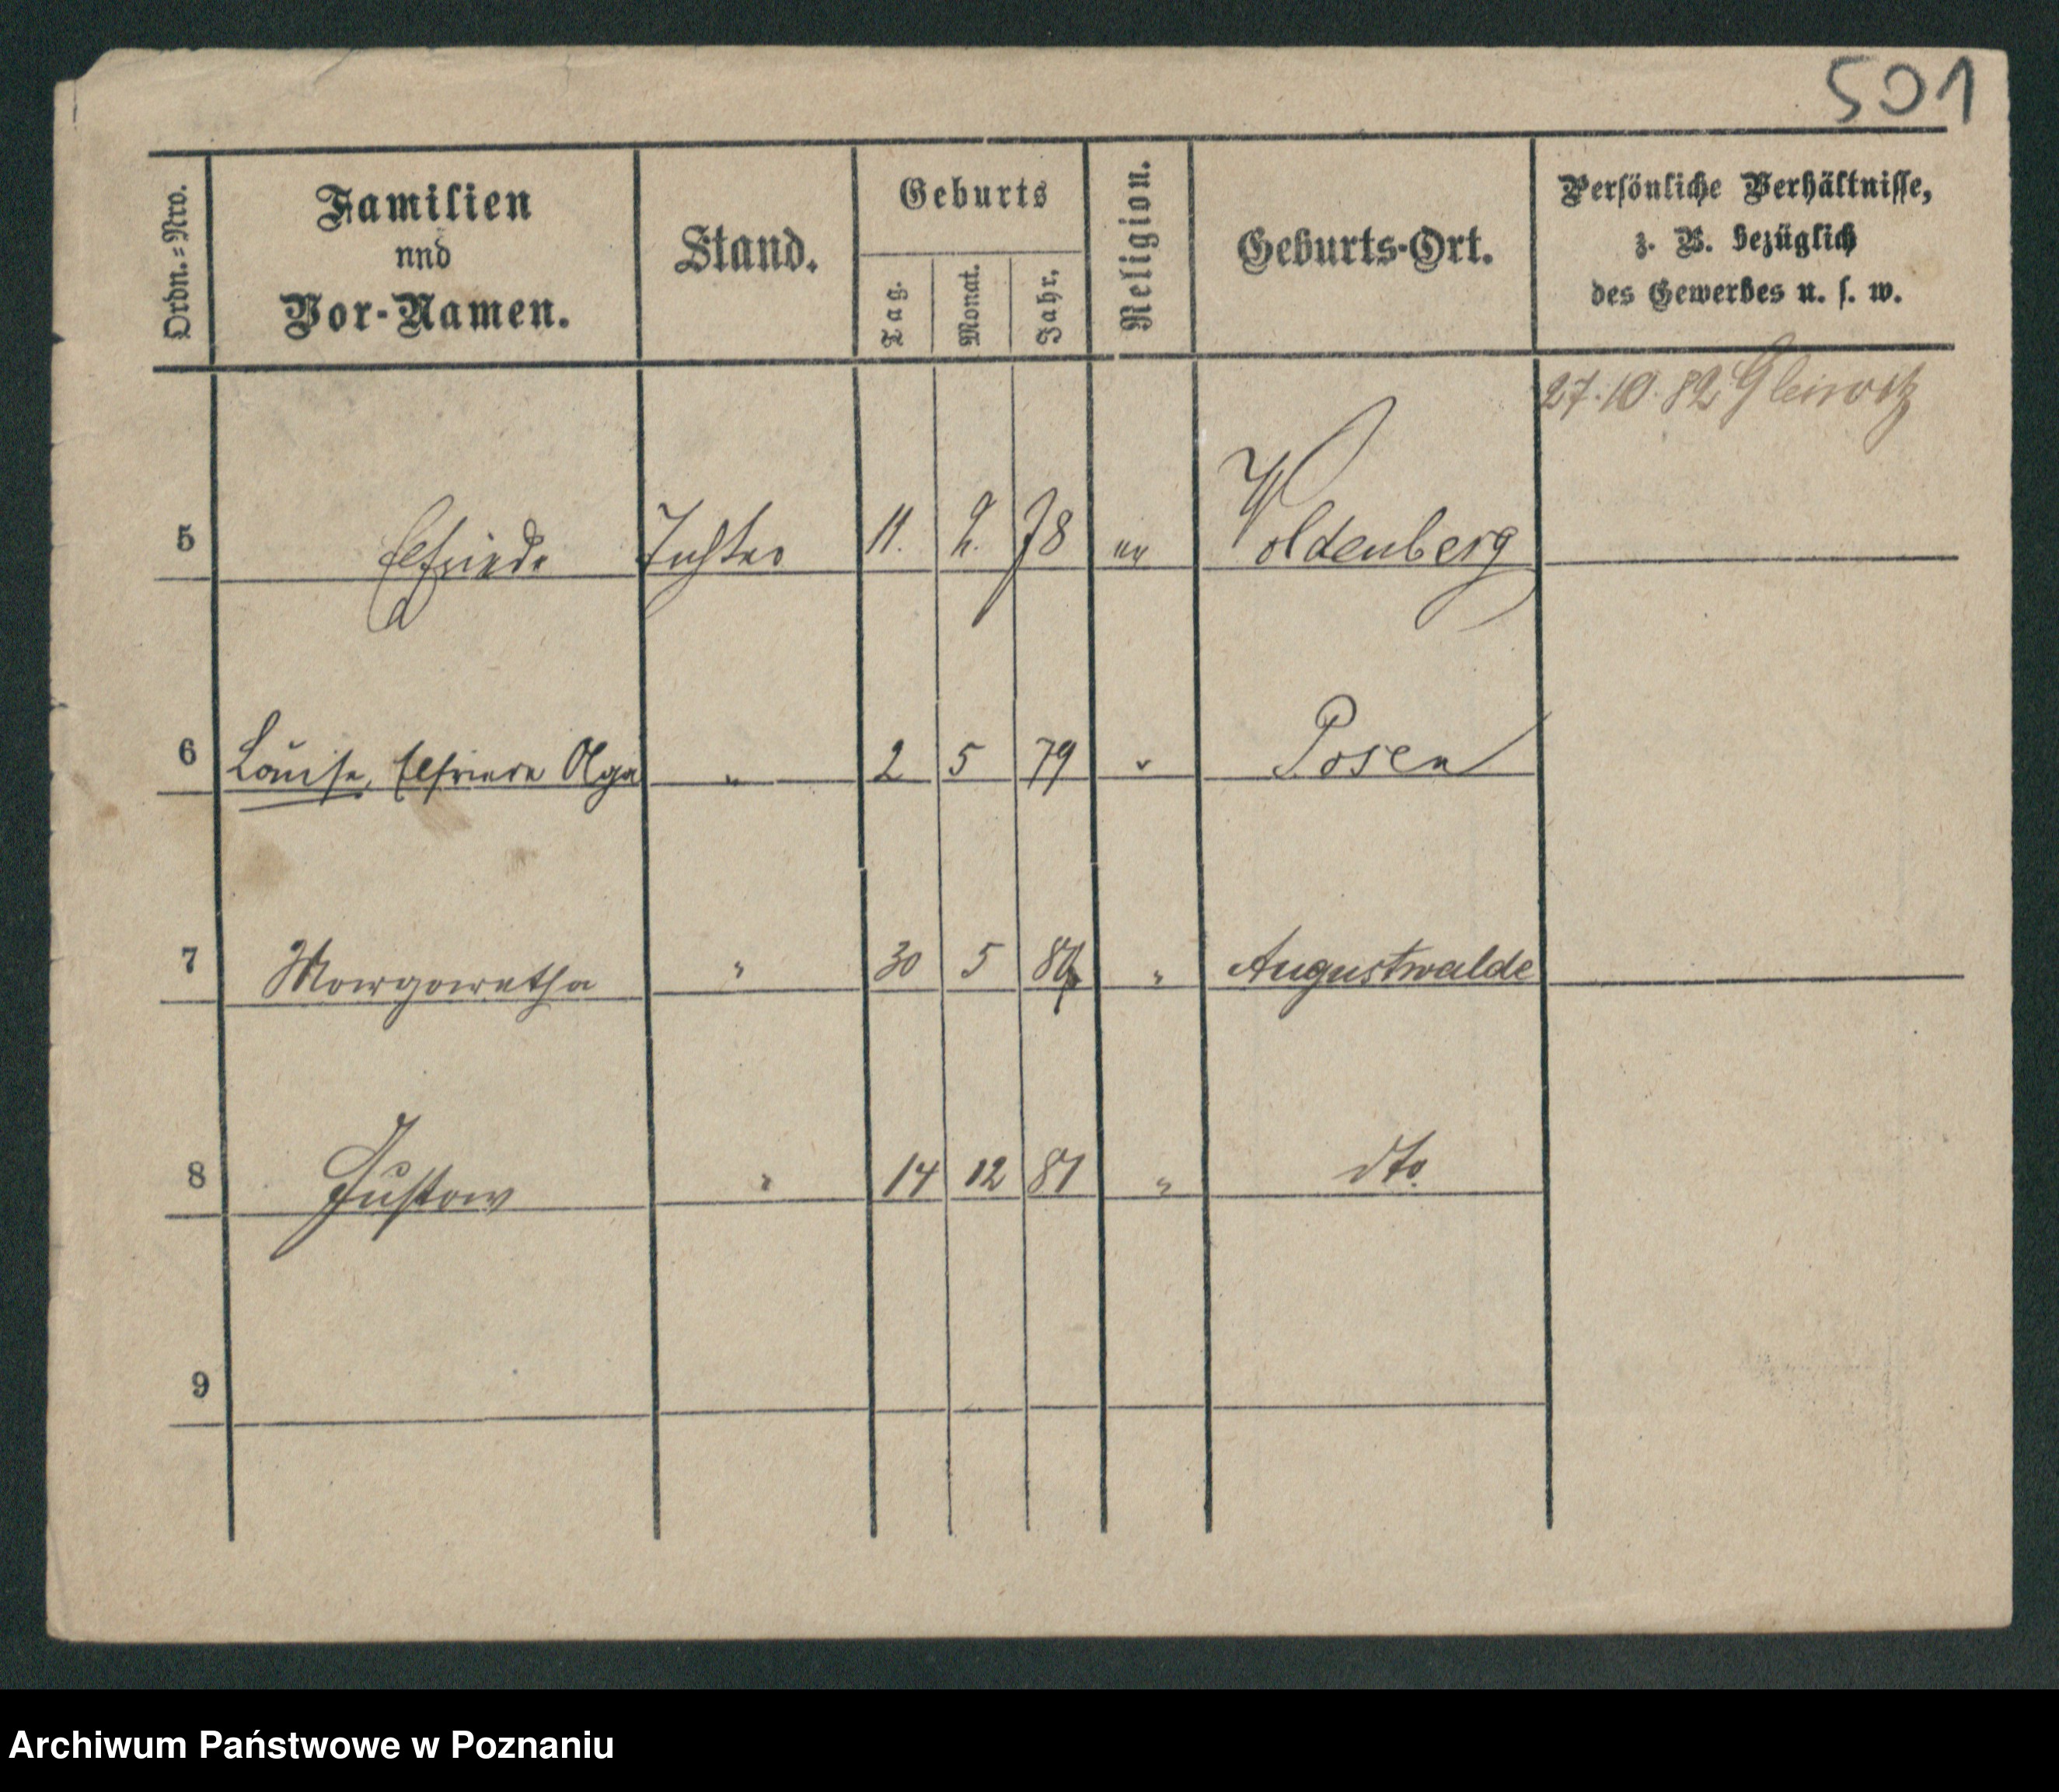 501
Ordn.=Nro.
Familien
nnd
Vor-Namen.
Stand.
Geburts
Tag.
Monat.
Jahr.
Religion.
Geburts-Ort.
Persönliche Verhältnisse,
z. B. bezüglich
des Gewerbes u. s. w.
27.10.82 Gleiwitz
5 Elfriede Tochter 11. 2. 78 Woldenberg
6 Louise, Elfriede Olga " 2 5 79 " Posen
7 Margarethe " 30 5 " Augustwalde
8 Gustav " 14 12 81 " dto.
9
Archiwum Państwowe w Poznaniu